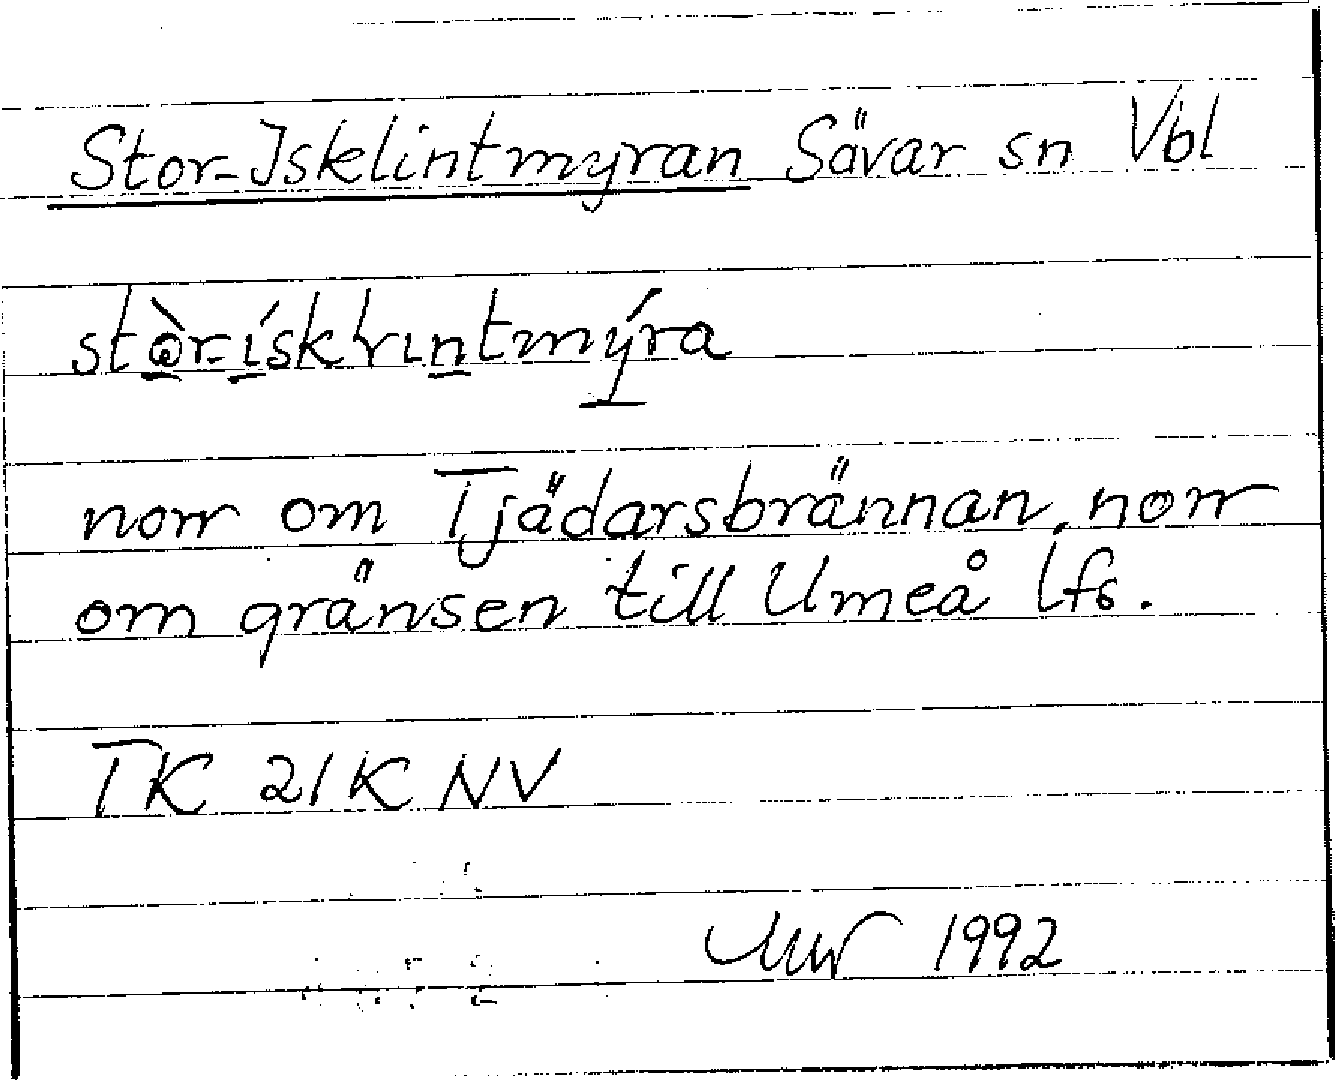 Stor-Isklintmyran Sävar sn Vbl
norr om Tjädarsbrännan, norr
om gränsen till Umeå lfs.
TK 21K NV
1992